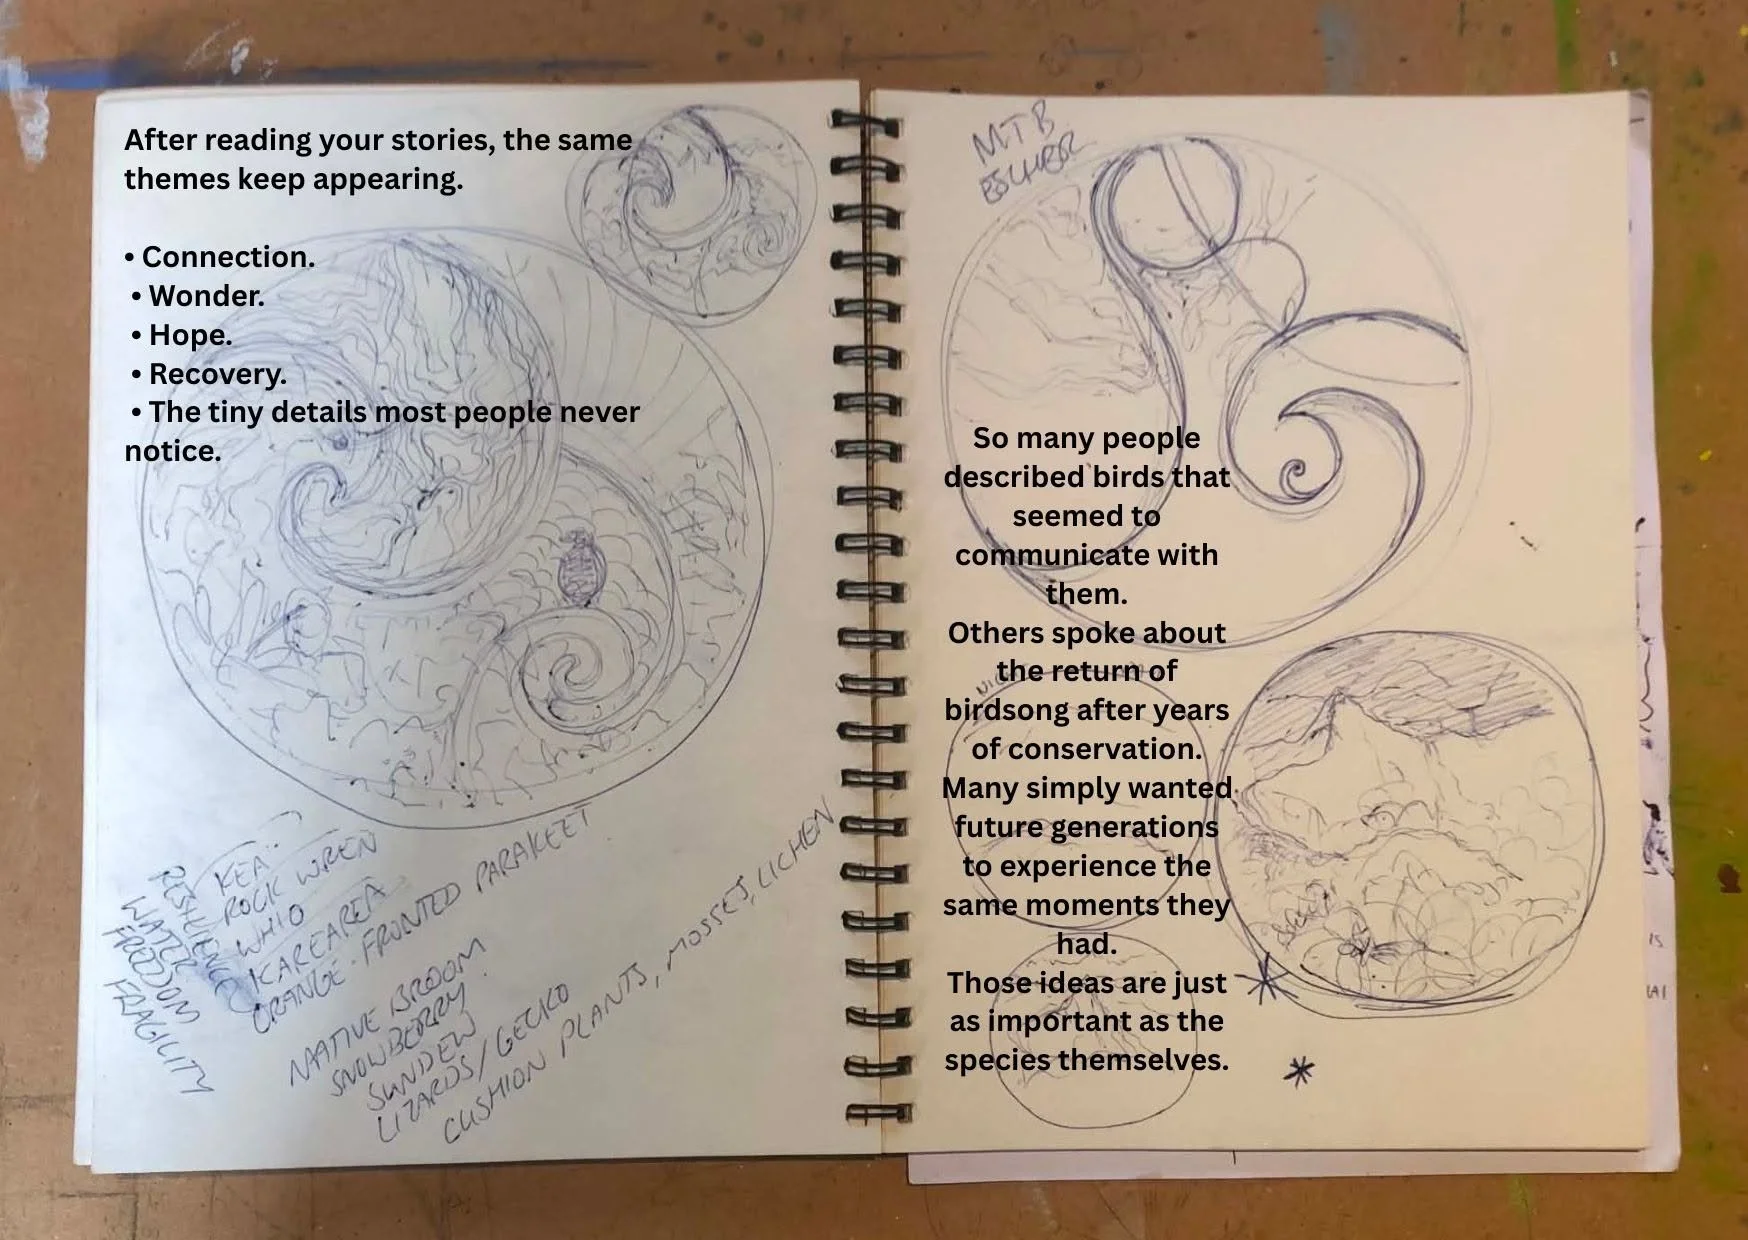 After reading your stories, the same
themes keep appearing.
• Connection.
• Wonder.
• Hope.
• Recovery.
• The tiny details most people never
notice.
KEA.
ROCK WREN
WHIO
KAREAREA
ORANGE-FRONTED PARAKEET
RESILIENCE
WATER
FREEDOM
FRAGILITY
NATIVE BROOM
SNOWBERRY.
SUNDEW
LIZARDS/GECKO
CUSHION PLANTS, MOSSES, LICHEN
MTB
ESCHER
So many people
described birds that
seemed to
communicate with
them.
Others spoke about
the return of
birdsong after years
of conservation.
Many simply wanted
future generations
to experience the
same moments they
had.
Those ideas are just
as important as the
species themselves.